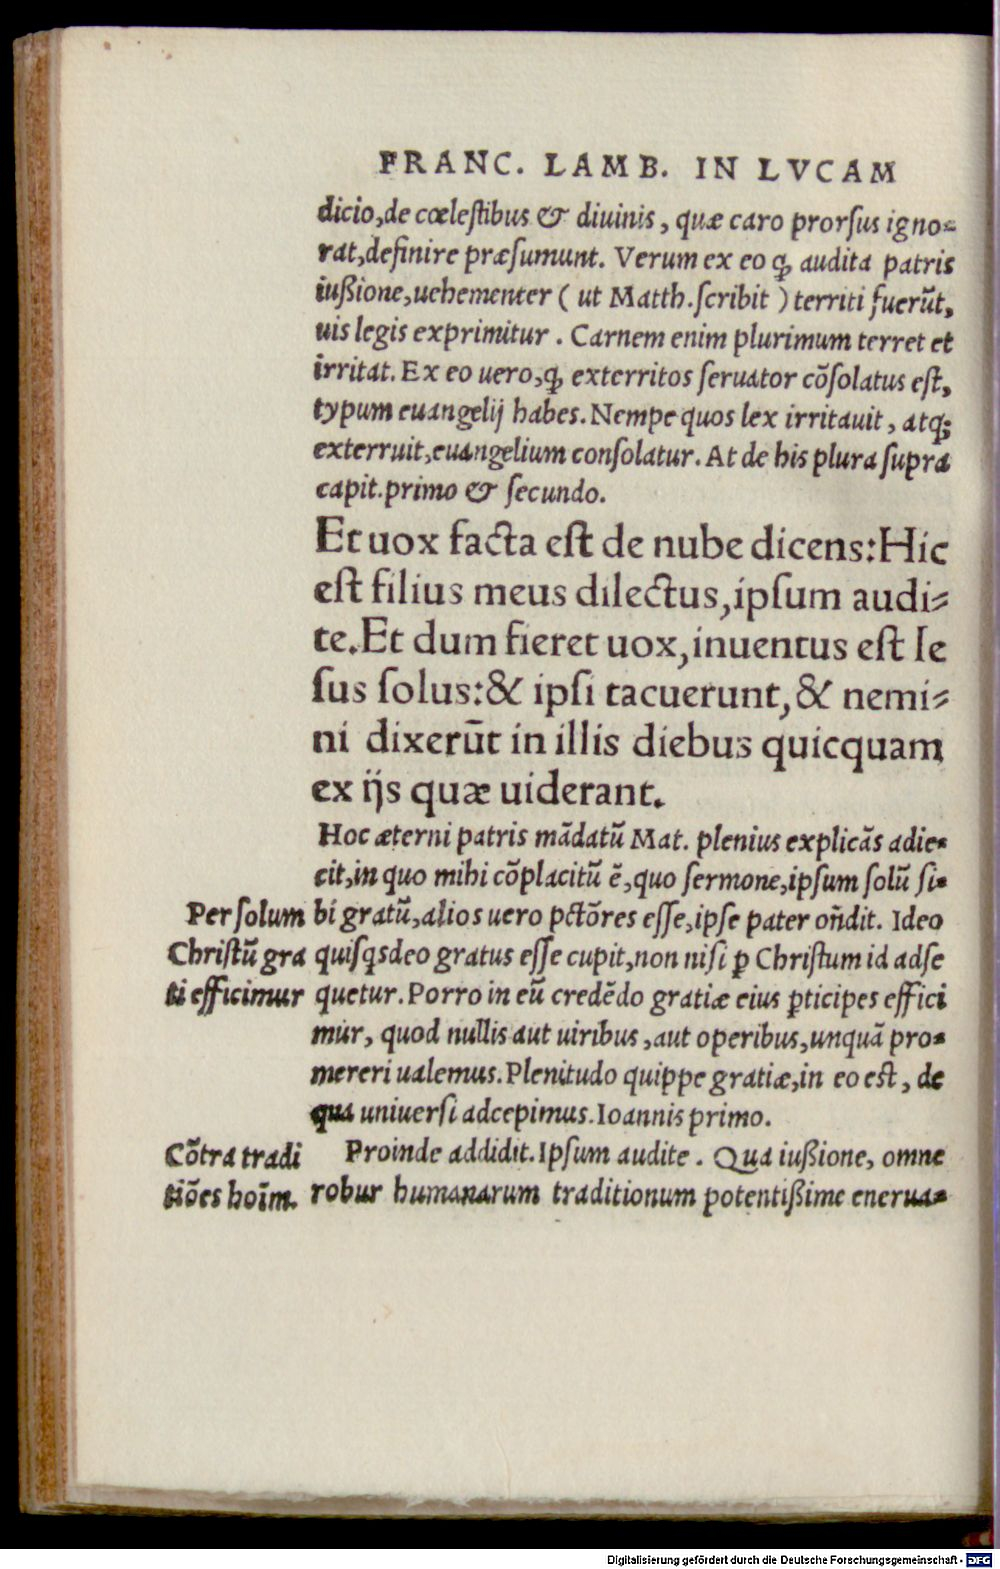 FRANC. LAMB. IN LVCAM
dicio, de cœleſtibus & diuinis, quæ caro prorſus igno-
rat, definire præſumunt. Verum ex eo ꝙ audita patris
iußione, uehementer ( ut Matth. ſcribit ) territi fuerūt,
uis legis exprimitur. Carnem enim plurimum terret et
irritat. Ex eo uero, ꝙ exterritos ſeruator cōſolatus eſt,
typum euangelij habes. Nempe quos lex irritauit, atq;
exterruit, euangelium conſolatur. At de his plura ſupra
capit. primo & ſecundo.
Et uox facta eſt de nube dicens: Hic
eſt filius meus dilectus, ipſum audi-
te. Et dum fieret uox, inuentus eſt Ie
ſus ſolus: & ipſi tacuerunt, & nemi-
ni dixerūt in illis diebus quicquam
ex ijs quæ uiderant.
Hoc æterni patris mādatū Mat. plenius explicās adie-
cit, in quo mihi cōplacitū ē, quo ſermone, ipſum ſolū ſi-
Per ſolum
Chriſtū gra
ti efficimur
bi gratū, alios uero pctōres eſſe, ipſe pater oñdit. Ideo
quiſqs deo gratus eſſe cupit, non niſi ꝑ Chriſtum id adſe
quetur. Porro in eū credēdo gratiæ eius ꝑticipes effici
mur, quod nullis aut uiribus, aut operibus, unquā pro-
mereri ualemus. Plenitudo quippe gratiæ, in eo est, de
qua uniuerſi adcepimus. Ioannis primo.
Cōtra tradi
tiōes hoīm.
Proinde addidit. Ipſum audite. Qua iußione, omne
robur humanarum traditionum potentißime enerua-
Digitalisierung gefördert durch die Deutsche Forschungsgemeinschaft - DFG